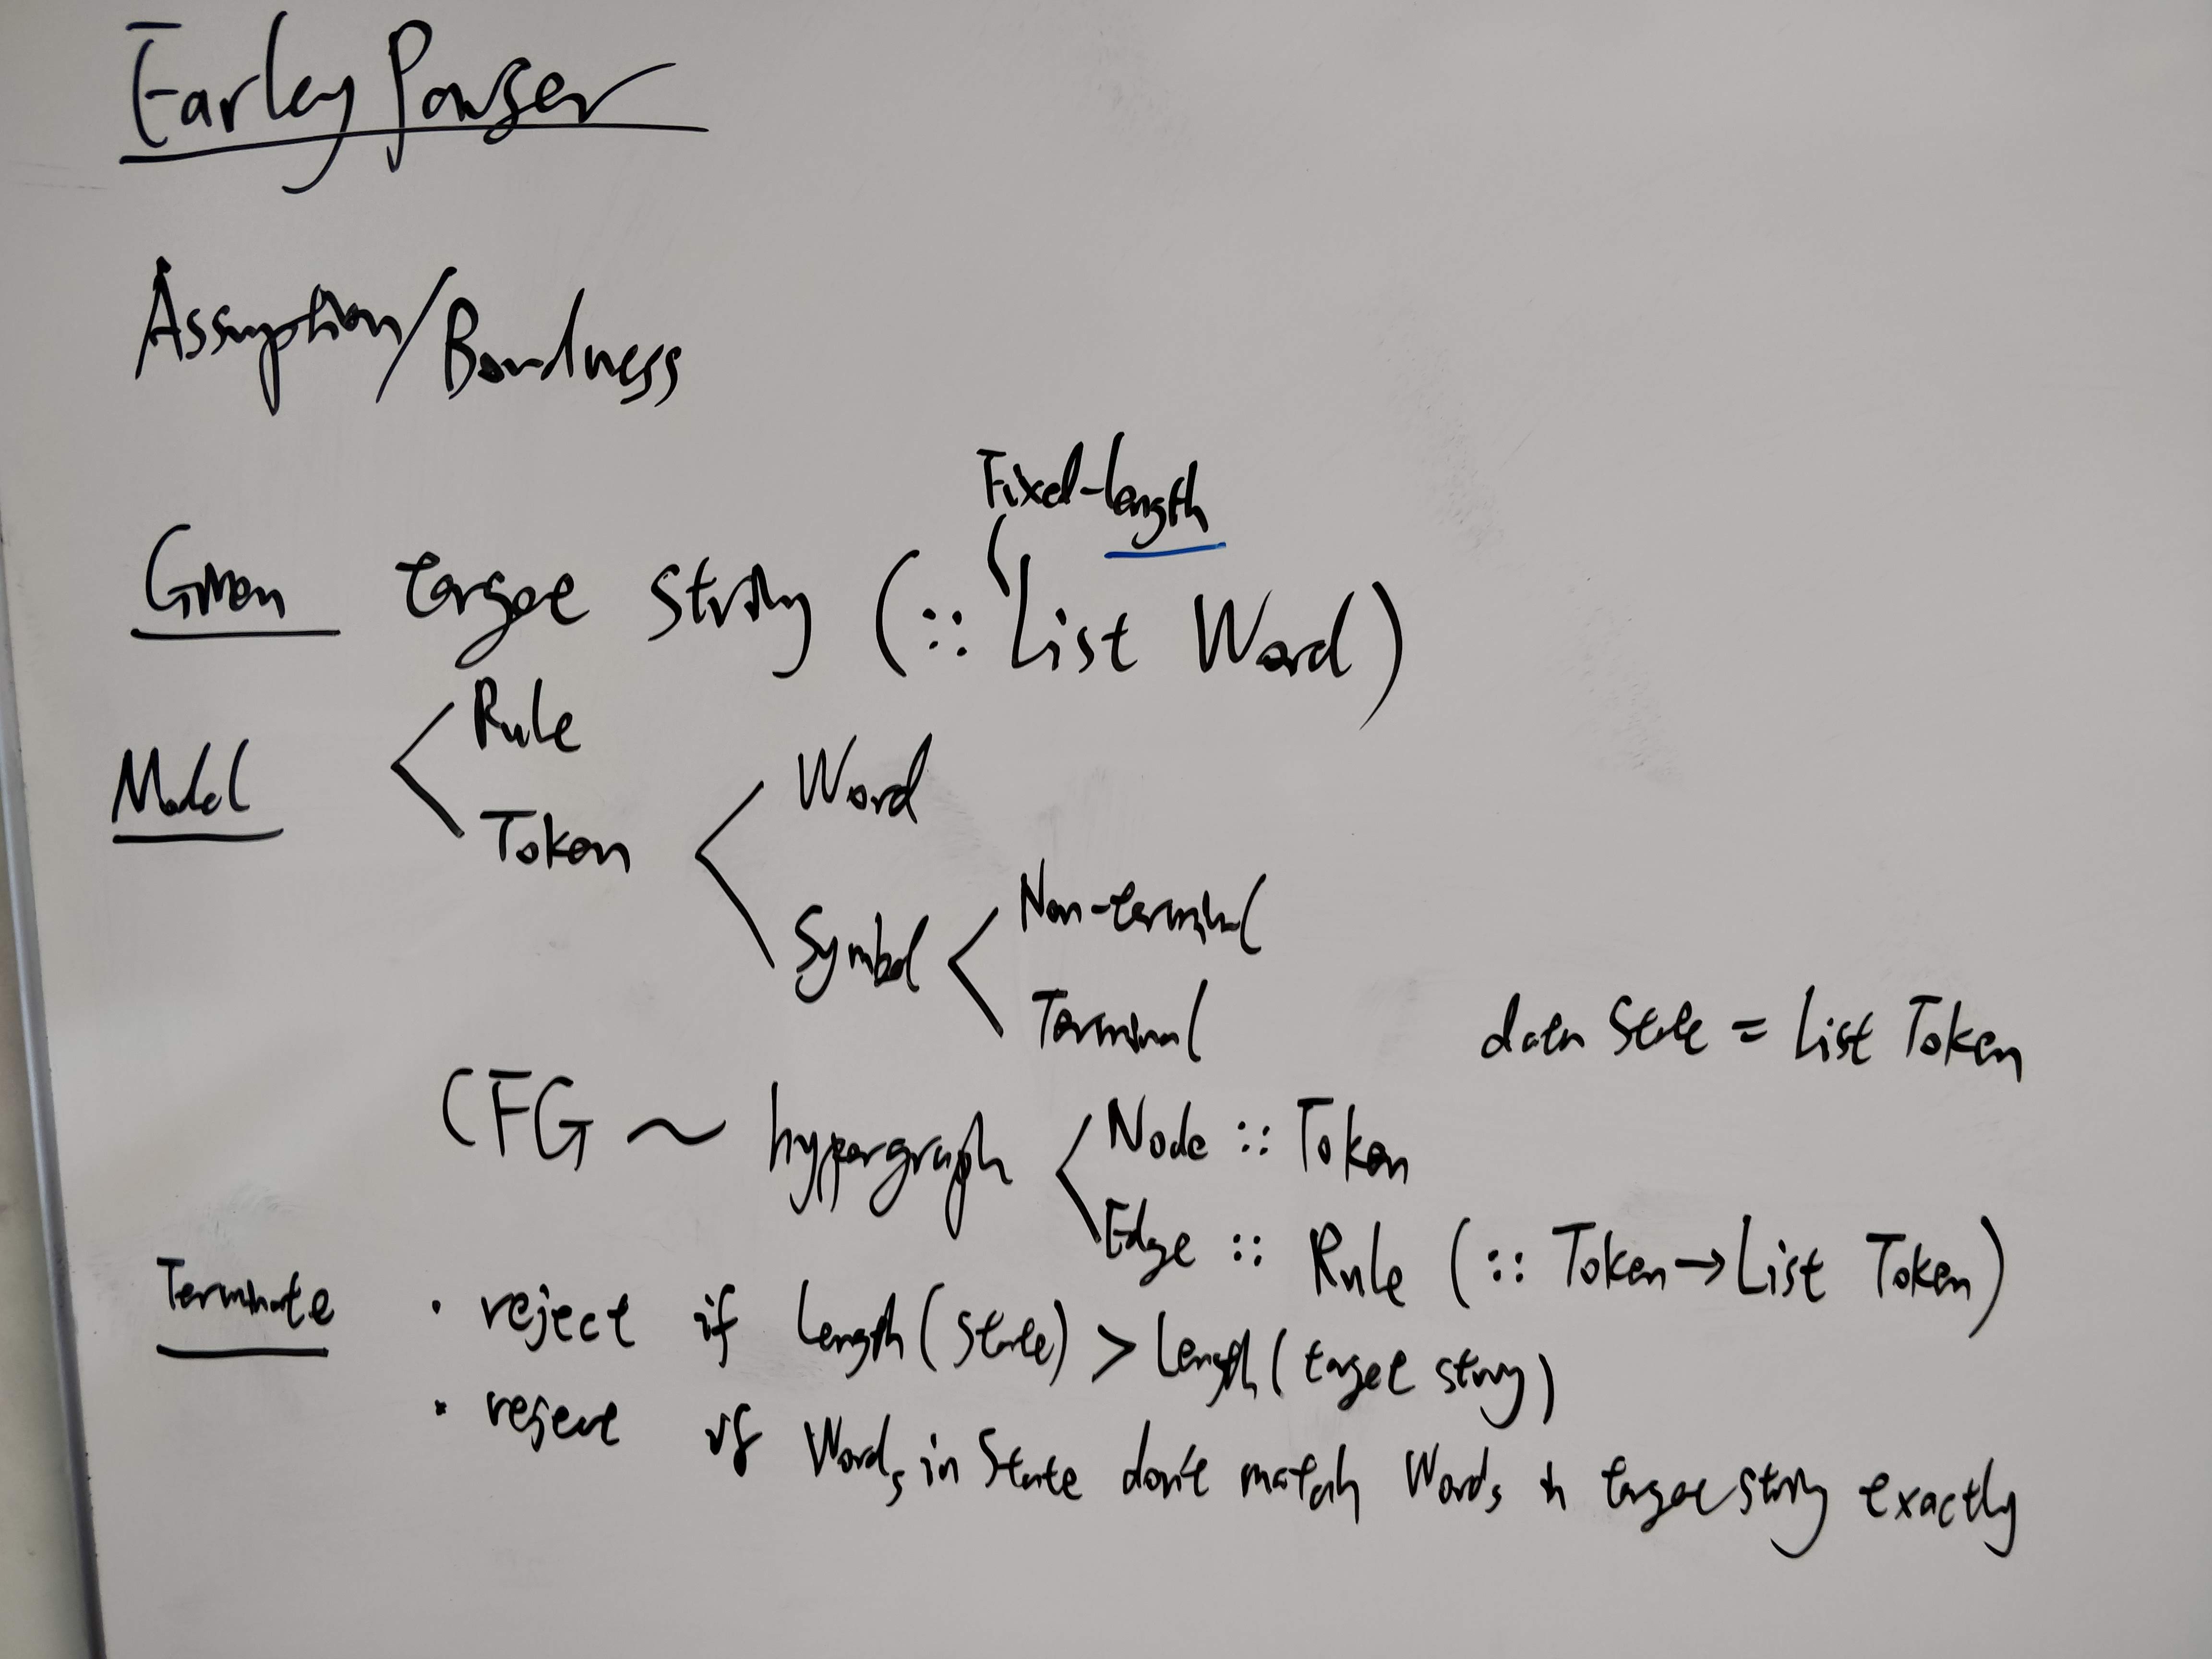 Earley Parser
Assumption/Boundness
Fixed-length
Given target string (:: List Word)
Rule
Model
Token
Word
Symbol
Non-terminal
Terminal
data State = List Token
CFG ~ hypergraph
Node :: Token
Edge :: Rule (:: Token → List Token)
Terminate
· reject if length (state) > length (target string)
· reject if Words in State don't match Words in target string exactly